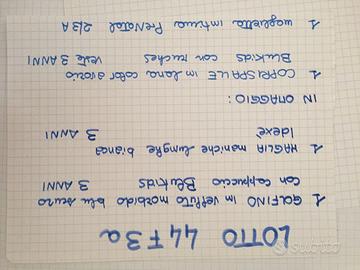 LOTTO 44 F 3a
1 GOLFINO in velluto morbido blu scuro
con cappuccio Blukids 3 ANNI
1 MAGLIA maniche lunghe bianca
Idexè 3 ANNI
IN OMAGGIO:
1 COPRISPALLE in lana color avorio
Blukids con ruches veste 3 ANNI
1 maglietta intima PreNatal 2/3A
subito